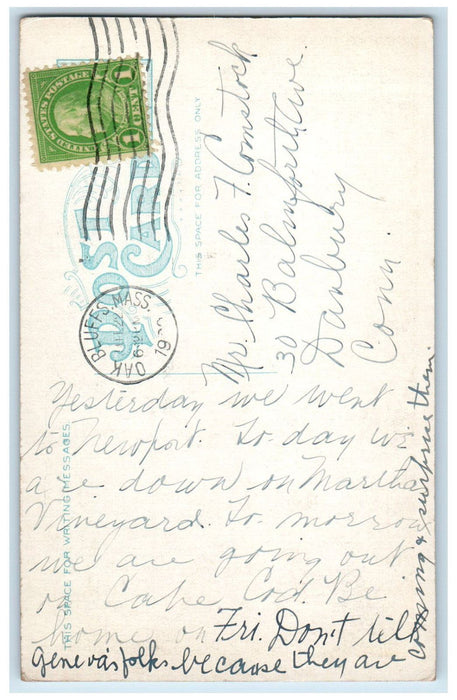 UNITED STATES POSTAGE
1 CENT 1
POST CARD
THIS SPACE FOR ADDRESS ONLY
OAK BLUFFS, MASS.
Mr. Charles F. Comstock
30 Balmforth Ave.
Danbury
Conn.
THIS SPACE FOR WRITING MESSAGES
Yesterday we went
to Newport. To-day we
are down on Marthas
Vineyard. To-morrow
we are going out
on Cape Cod. Be
home on Fri. Don't tell
Geneva's folks because they are
coming & surprise them.